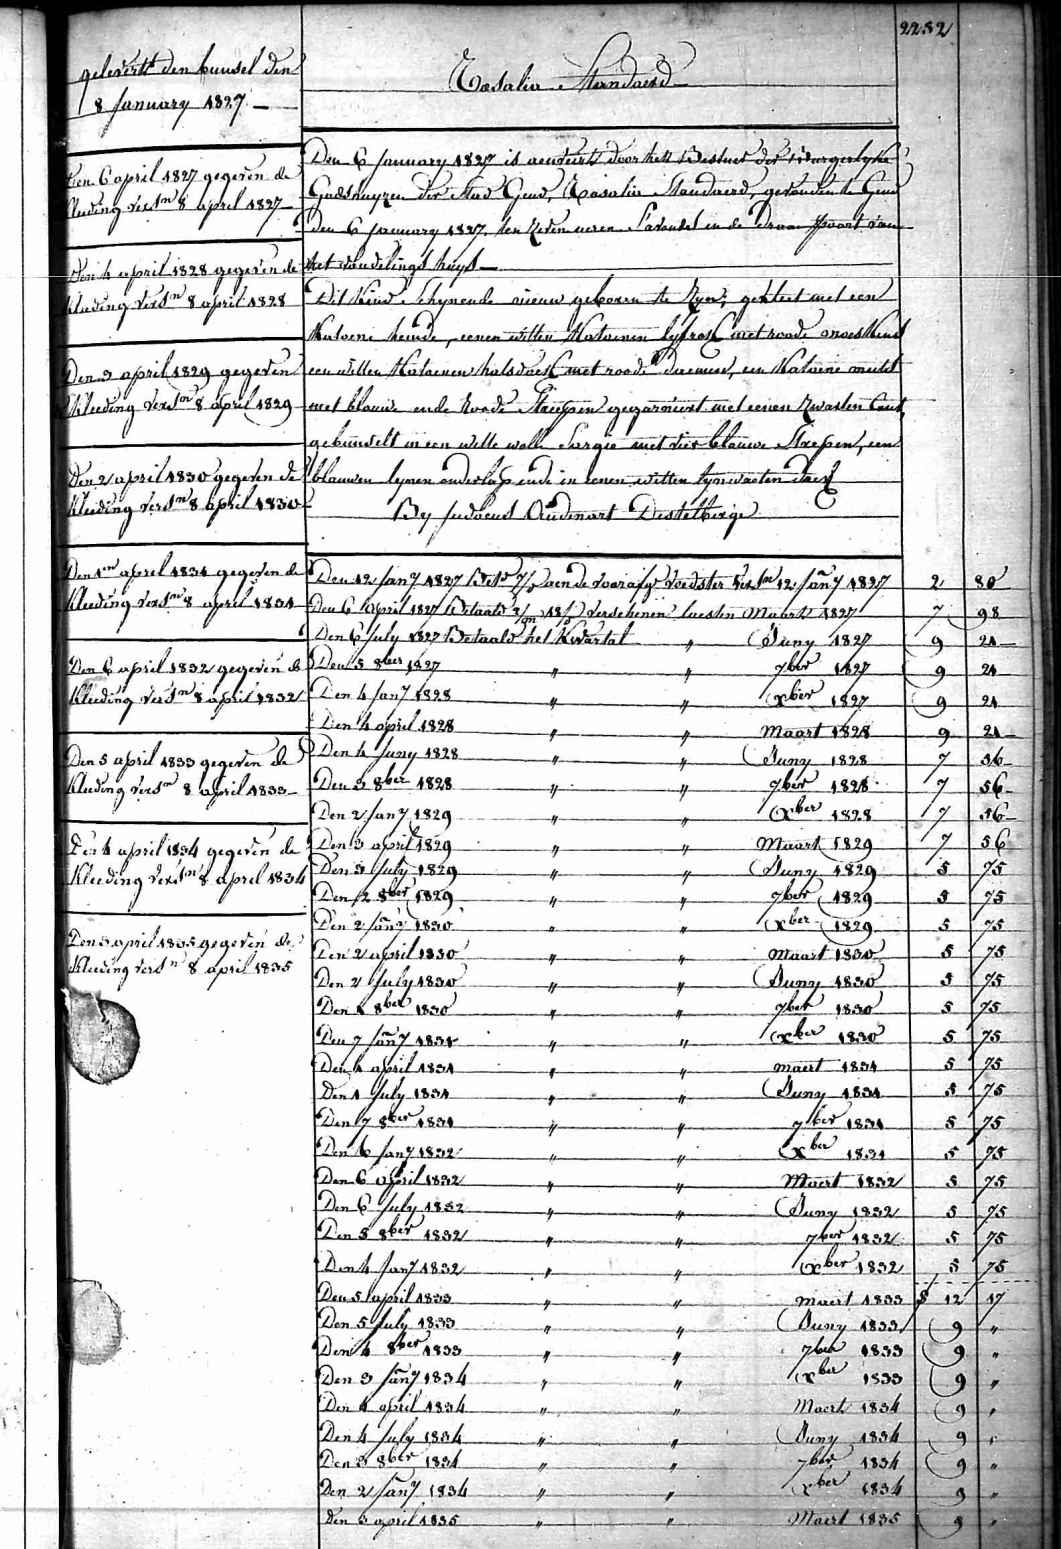 2252
gelevert den bunsel den
8 January 1827
Rosalia Standaerd
den 6 april 1827 gegeven de
kleding vers.n 8 april 1827
Den 4 april 1828 gegeven de
kleding vers.n 8 april 1828
Den 3 april 1829 gegeven
kleeding vers.n 8 april 1829
Den 2 april 1830 gegeven de
kleeding vers.n 8 april 1830
Den 1en april 1831 gegeven de
kleeding vers.n 8 april 1831
Den 6 april 1832 gegeven de
kleeding vers.n 8 april 1832
Den 5 april 1833 gegeven de
kleeding vers.n 8 april 1833
Den 4 april 1834 gegeven de
kleeding vers.n 8 april 1834
Den 3 april 1835 gegeven de
kleeding vers.n 8 april 1835
Den 6 January 1827 is aenveirt door het Bestuer der Burgerlyke
Godshuyzen der Stad Gend, Rosalia Standaerd, gevonden te Gend
den 6 January 1827, ten zeven ueren s'avonds in de Draai poort van
het vondelings huys
Dit kind schynende nieuw geboren te zyn, gekleet met een
katoene hemde, eenen witten katoenen lyfrok met roode
een witten katoenen halsdoek met roode, een katoene muts
met blauwe ende roode streepen gegarniert met eenen zwarten Cant,
gebunselt in een witte wolle sargie met vier blauwe strepen, een
blauwen lynen onderlap ende in eenen witten lynwaeten doek
By Judocus Oudenaert Destelberge
Den 12 Jany 1827 Bet.d aen de voorafg voedster vers.n 12 Jany 1827 2 80
Den 6 april 1827 Betaald verschenen laesten Maart 1827 7 98
Den 6 July 1827 Betaald het Kwartal " Juny 1827 9 24
Den 5 8ber 1827 " " 7ber 1827 9 24
Den 4 Jany 1828 " " xber 1827 9 24
Den 4 april 1828 " " Maart 1828 9 24
Den 4 Juny 1828 " " Juny 1828 7 56
Den 3 8ber 1828 " " 7ber 1828 7 56
Den 2 Jany 1829 " " xber 1828 7 56
Den 3 april 1829 " " Maart 1829 7 56
Den 3 July 1829 " " Juny 1829 5 75
Den 2 8ber 1829 " " 7ber 1829 5 75
Den 2 Jany 1830 " " xber 1829 5 75
Den 2 april 1830 " " Maart 1830 5 75
Den 2 July 1830 " " Juny 1830 5 75
Den 8ber 1830 " " 7ber 1830 5 75
Den 7 Jany 1831 " " xber 1830 5 75
Den 4 april 1831 " " maert 1831 5 75
Den 1 July 1831 " " Juny 1831 5 75
Den 7 8ber 1831 " " 7ber 1831 5 75
Den 6 Jany 1832 " " xber 1831 5 75
Den 6 april 1832 " " Maert 1832 5 75
Den 6 July 1832 " " Juny 1832 5 75
Den 5 8ber 1832 " " 7ber 1832 5 75
Den 4 Jany 1832 " " xber 1832 5 75
Den 5 april 1833 " " maert 1833 12 17
Den 5 July 1833 " " Juny 1833 9 "
Den 4 8ber 1833 " " 7ber 1833 9 "
Den 3 Jany 1834 " " xber 1833 9 "
Den 4 april 1834 " " Maert 1834 9 "
Den 4 July 1834 " " Juny 1834 9 "
Den 3 8ber 1834 " " 7ber 1834 9 "
Den 2 Jany 1834 " " xber 1834 9 "
Den 3 april 1835 " " Maert 1835 9 "